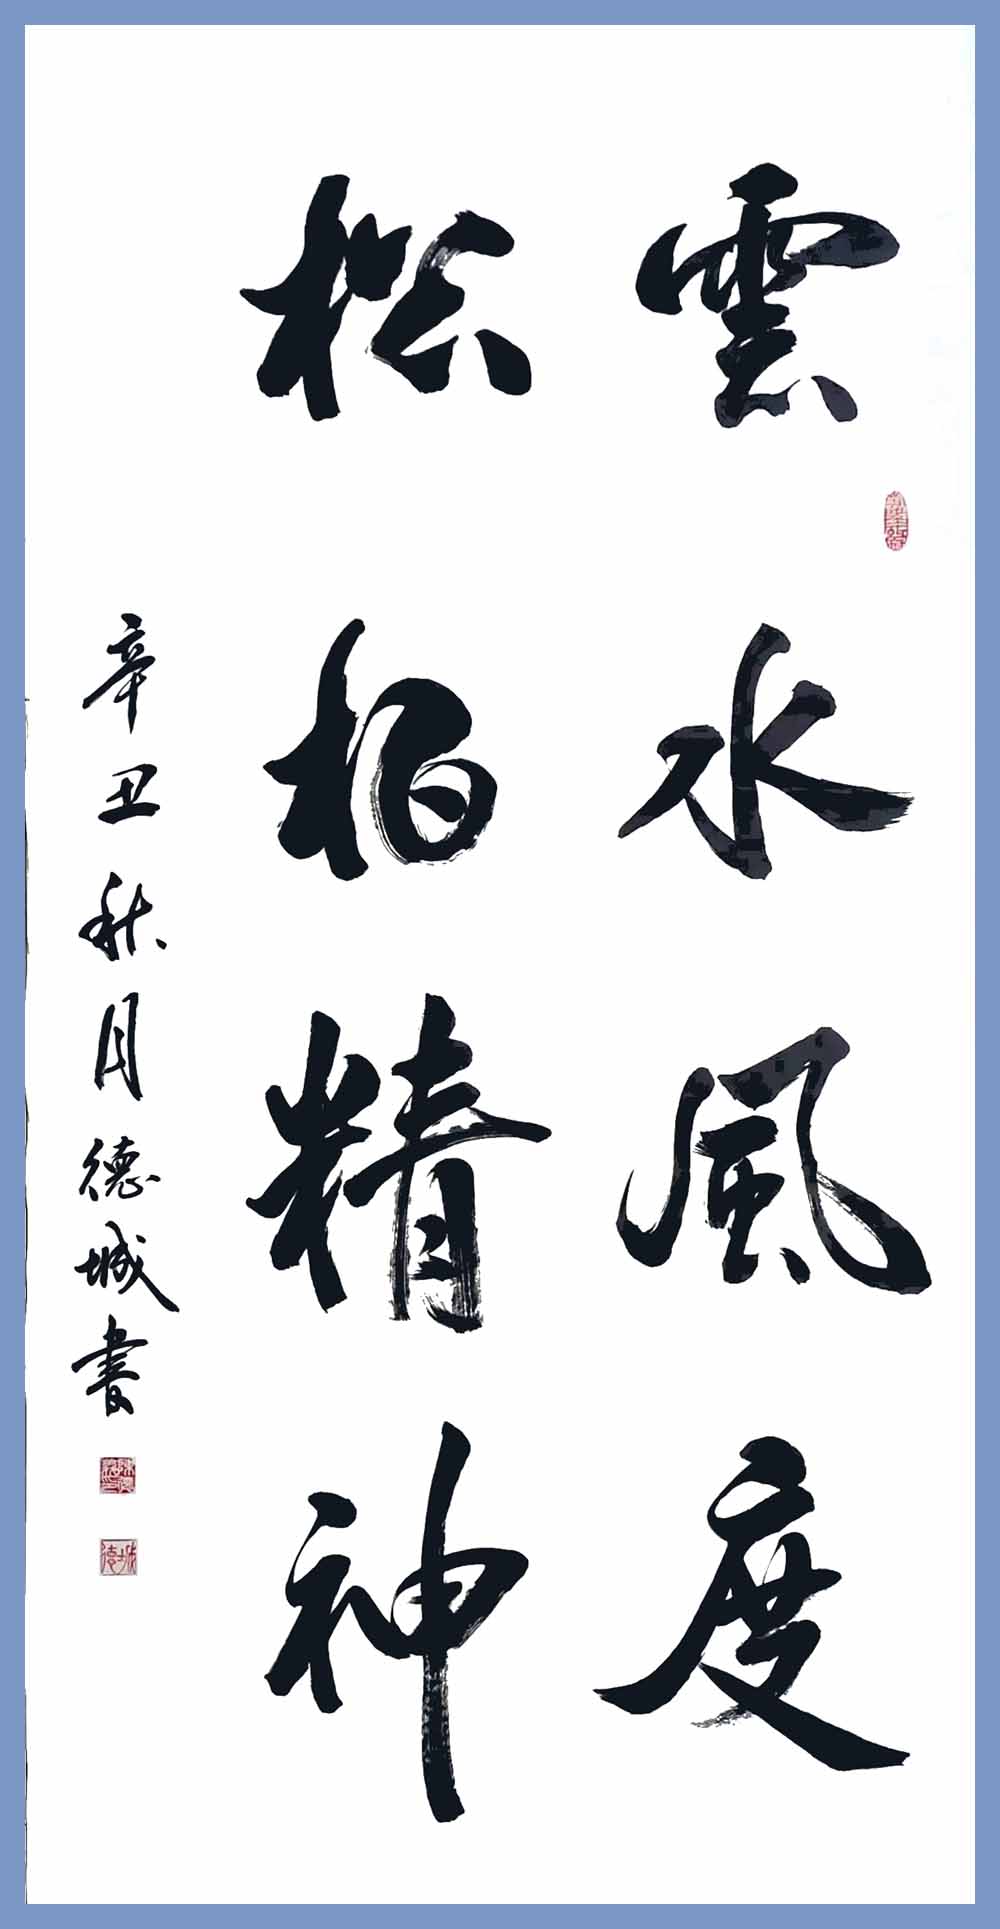 雲水風度
松柏精神
辛丑秋月德城書